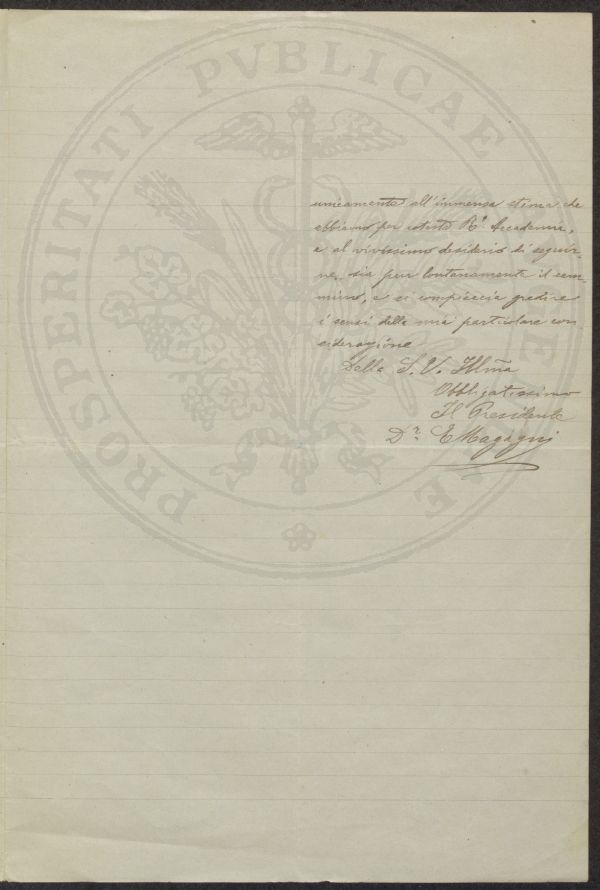 unicamente all'immensa stima che
abbiamo per codesta R.ª Accademia,
e al vivissimo desiderio di seguir-
ne, sia pur lontanamente il cam-
mino, e si compiaccia gradire
i sensi della mia particolare con
siderazione
Della S. V. Illm̃a
Obbligatissimo
Il Presidente
Dr.
PROSPERITATI PVBLICAE